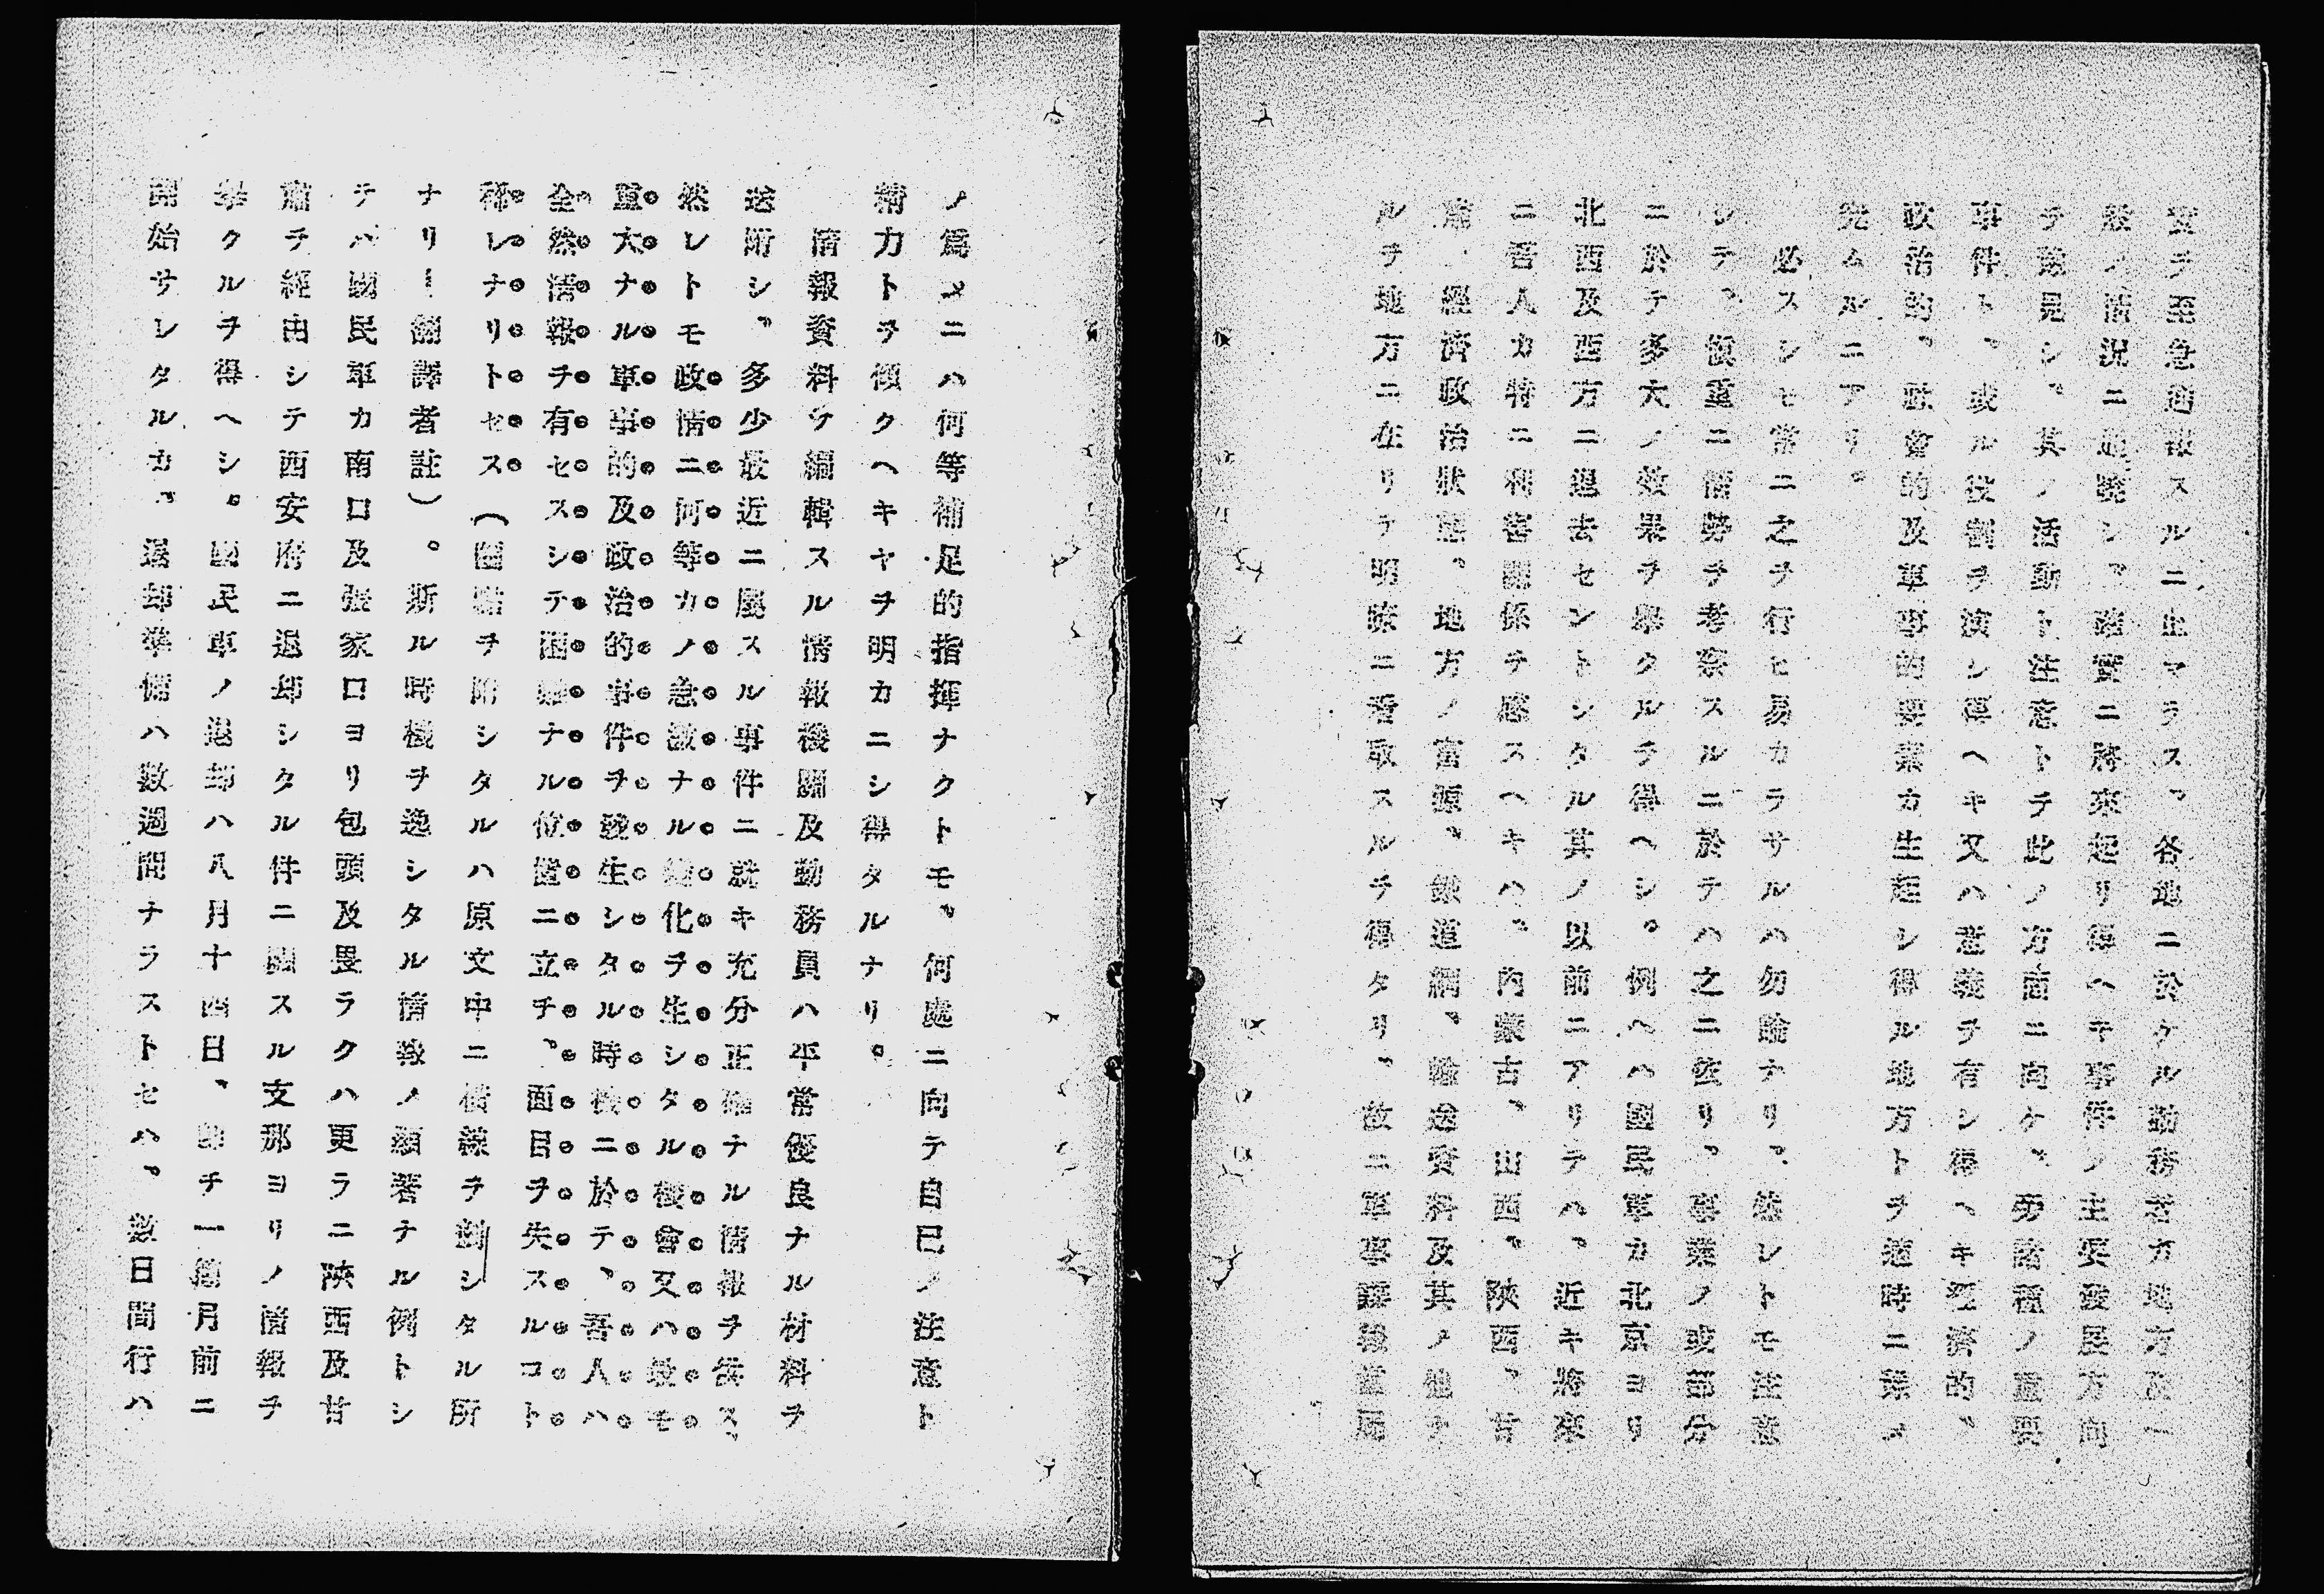 實ヲ至急通報スルニ止マラス、各地ニ於ケル勤務者カ地方及一
般ノ情況ニ通曉シ、確實ニ將來起リ得ヘキ事件ノ主要發展方向
ヲ豫見シ、其ノ活動ト注意トヲ此ノ方面ニ向ケ、旁諸種ノ重要
事件ト、或ル役割ヲ演シ得ヘキ又ハ意義ヲ有シ得ヘキ經濟的、
政治的、社會的及軍事的要素カ生起シ得ル地方トヲ適時ニ集メ
シムルニアリ。
必スシモ常ニ之ヲ行ヒ易カラサルハ勿論ナリ。然レトモ注意
シテ、慎重ニ情勢ヲ考察スルニ於テハ之ニ依リ、事業ノ或部分
ニ於テ多大ノ效果ヲ擧クルヲ得ヘシ。例ヘハ國民軍カ北京ヨリ
北西及西方ニ退去セントシタル其ノ以前ニアリテハ、近キ將來
ニ吾人カ特ニ利害關係ヲ感スヘキハ、內蒙古、山西、陝西、甘
肅、經濟政治狀態、地方ノ富源、鐵道網、輸送資料及其ノ他ナ
ルヲ地方ニ在リテ明瞭ニ看取スルヲ得タリ、故ニ軍事諜報當局
ノ爲メニハ何等補足的指揮ナクトモ、何處ニ向テ自己ノ注意ト
精力トヲ傾クヘキヤヲ明カニシ得タルナリ。
情報資料ヲ編輯スル情報機關及勤務員ハ平常優良ナル材料ヲ
送附シ、多少最近ニ屬スル事件ニ就キ充分正確ナル情報ヲ供ス、
然レトモ政情ニ何等カノ急激ナル變化ヲ生シタル機會又ハ最モ
重大ナル軍事的及政治的事件ヲ發生シタル時機ニ於テ、吾人ハ
全然諜報ヲ有セスシテ困難ナル位置ニ立チ、面目ヲ失スルコト
稀レナリトセス。(圈點ヲ附シタルハ原文中ニ橫線ヲ劃シタル所
ナリ！飜譯者註)。斯ル時機ヲ逸シタル情報ノ顯著ナル例トシ
テハ國民軍カ南口及張家口ヨリ包頭及畏ラクハ更ラニ陝西及甘
肅ヲ經由シテ西安府ニ退却シタル件ニ關スル支那ヨリノ情報ヲ
擧クルヲ得ヘシ。國民軍ノ退却ハ八月十四日、卽チ一箇月前ニ
開始サレタルカ、退却準備ハ數週間ナラストセハ、數日間行ハ